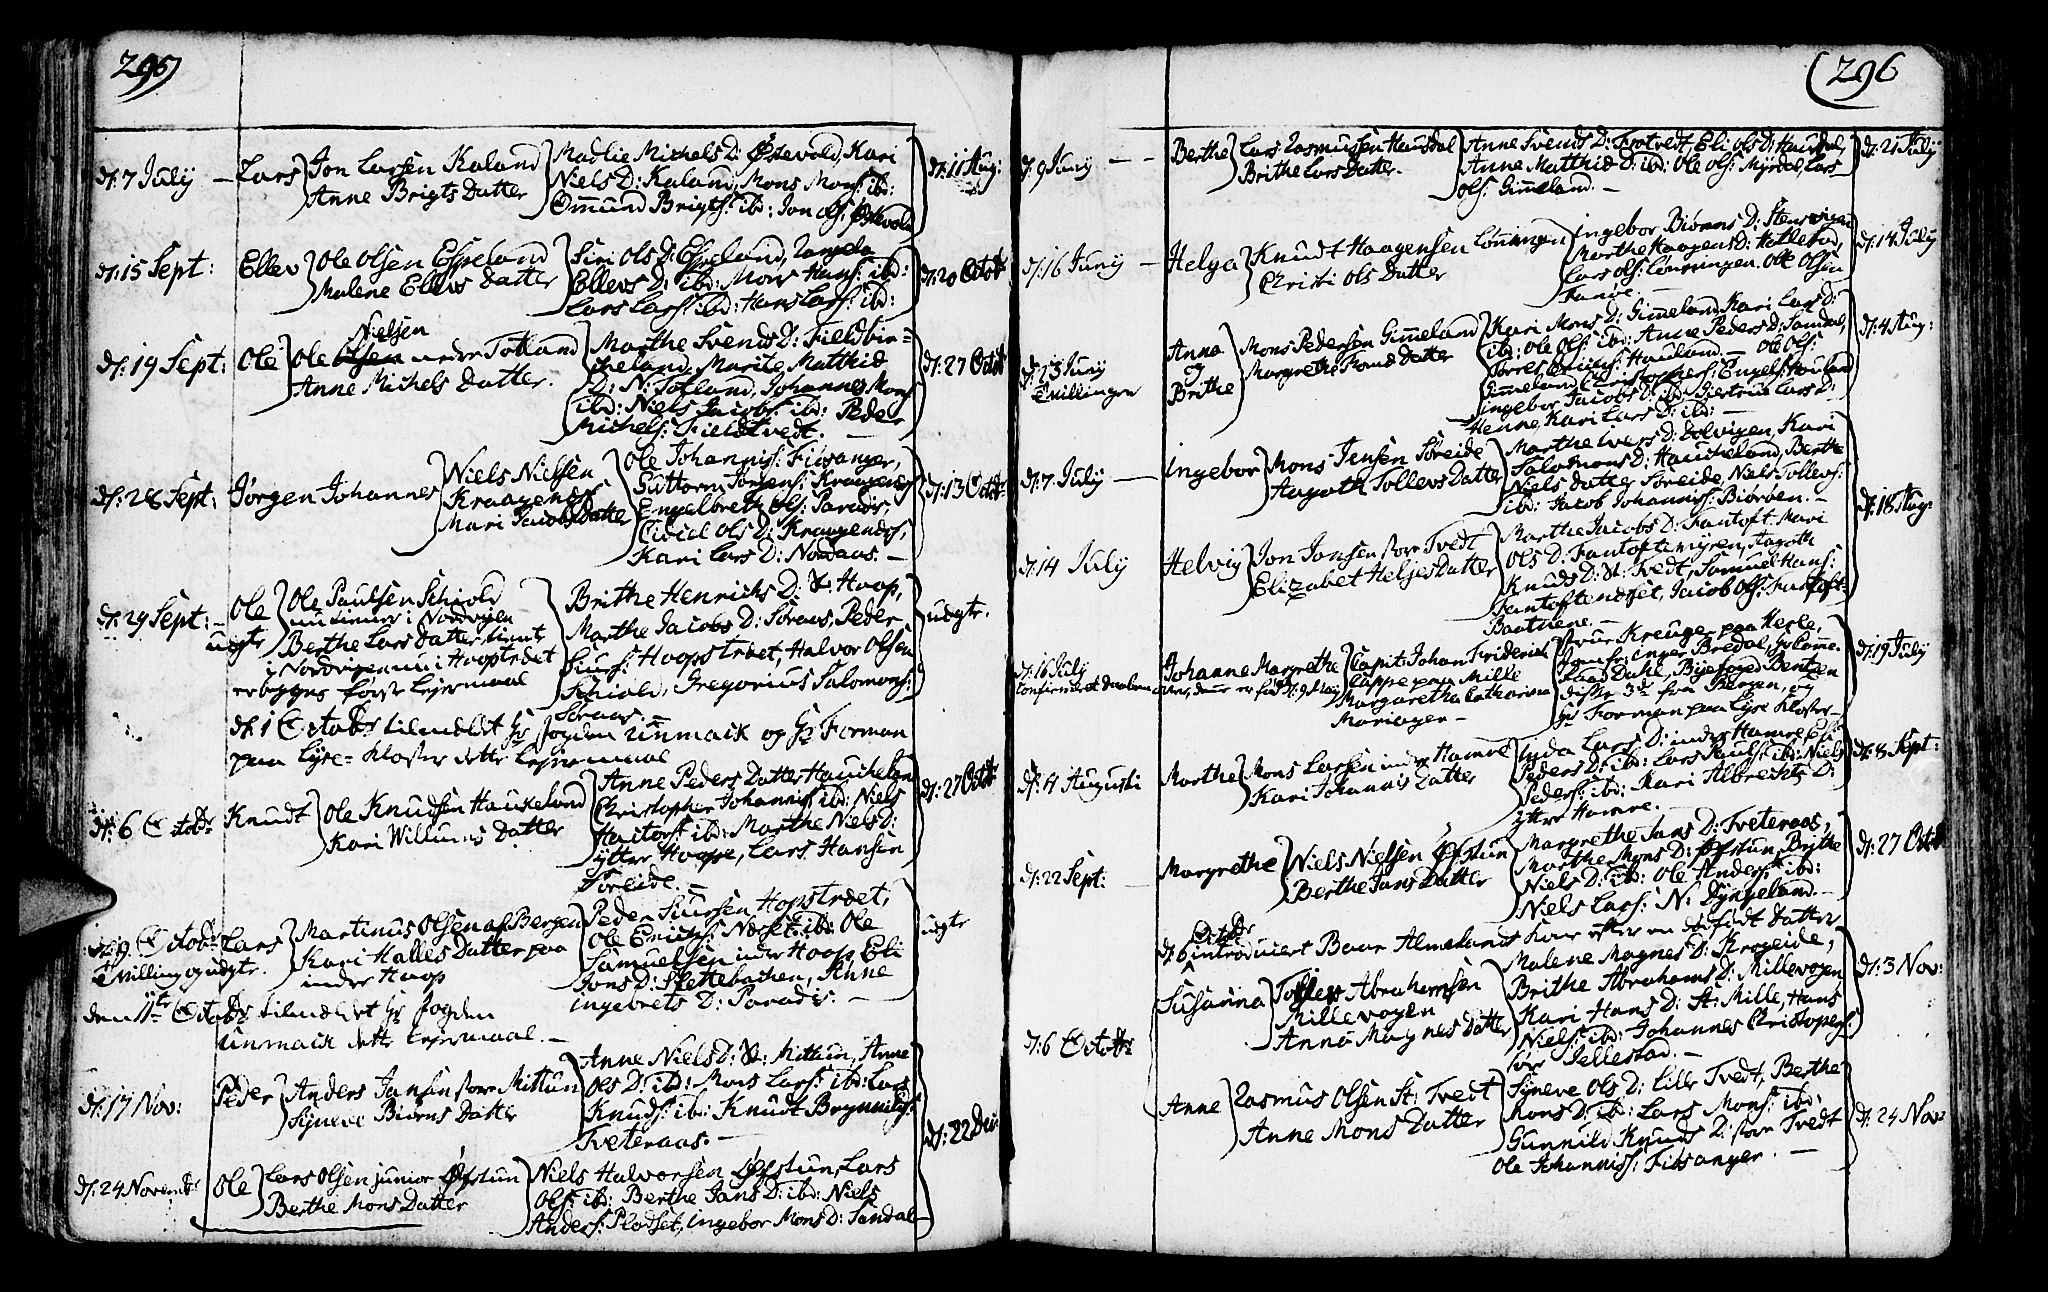 295
d: 7 July – Lars Jon Larsen Kaland
Anne Brigts Datter
Madlie Michels D: Østevold, Kari
Niels D: Kaland, Mons Mons: ibd:
Omund Brigts: ibd: Jon Ols: Østevold
d: 11 Aug:
d: 15 Sept: Ellev Ole Olsen Espeland
Malene Ellevs Datter
Siri Ols D: Espeland,
Ellevs D: ibd: Mons Hans: ibd:
Lars Lars: ibd: Hans Lars: ibd:
d: 20 Octob
d: 19 Sept: Ole Ole Olsen Nielsen nedre Totland
Anne Michels Datter.
Marthe Svends D: Fieldbir=
keland, Marite Matthid
D: N: Totland, Johannes Mons
ibd: Niels Jacobs: ibd: Peder
Michels: Fieldtvedt. –
d: 27 Octob
d: 28 Sept: Jørgen Johannes Niels Nielsen
Kraagenes
Mari Jacobs Datter
Ole Johannis: Fibsanger,
Guttorm Jørgens: Kraagenes
Engelbreth Ols: Paradis,
Cicil Ols D: Kraagenes,
Kari Lars D: Nordaas. –
d: 13 Octob
d: 29 Sept: – Ole
uegte
Ole Paulsen Schiold
nu tienner i Nordvigen
Berthe Lars Datter tient
i Nordvigen nu i Hoopstrædet
er bygges første Lejermaal
Brithe Henrichs D: St: Hoop,
Marthe Jacobs D: Søraas, Peder
Siurs: Hoopstræet, Halvor Olsen
Schiold, Gregorius Salomons:
Søraas. –
udgtr.
d: 1 Octobr tilmeldet Hr Fogden Unmack og Hr Forman
paa Lyse-Kloster dette Lejermaal
d: 6 Octobr Knudt Ole Knudsen Haukeland
Kari Willums Datter
Anne Peders Datter Haucheland
Christopher Johannis: ibd: Niels
Haitors: ibd: Marthe Niels D:
ytter Hoope, Lars Hansen
Søreide. –
d: 27 Octob
d: 9 Octobr Lars
Tvilling og udgtr.
Martinus Olsen af Bergen
Kari Halles Datter paa
indre Hoop
Peder Siursen Hopstræet,
Ole Erichs: Næset ibd: Ole
Samuelsen indre Hoop, Eli
Jons D: Slettebachen, Anne
Ingebrets D: Paradis. –
uegte
den 11te Octobr tilmeldet Hr Fogden
Unmack dette Lejermaal. –
d: 17 Nov: Peder Anders Jansen store Mittun
Synneve Biørns Datter
Anne Niels D: St: Mittun, Anne
Ols D: ibd: Mons Lars: ibd: Lars
Knuds: ibd: Knudt Brynnilds:
Tveteraas. –
d: 22 Dec:
d: 24 Novembr Ole Lars Olsen junior Øfstun
Berthe Mons Datter
Niels Halvorsen Øfstun, Lars
Ols: ibd: Berthe Jans D: ibd: Niels
Anders: Pladset, Ingebor Mons D: Sandal –
296
d: 9 Junij – – Berthe Lars Rasmussen Hausdal
Brithe Lars Datter. –
Anne Svends D: Frotvedt, Eli Ols D: Hausdal,
Anne Matthid D: ibd: Ole Ols: Myrdal, Lars
Ols: Gimmeland. –
d: 21 July
d: 16 Junij – Helga Knudt Haagensen Lønningen
Christi Ols Datter
Ingebor Biørns D: Stensvigen
Marthe Haagens D: Hatlestad,
Lars Ols: Lønningen. Ole Olsen
Fanøe. –
d: 14 July
d: 23 Junij
Tvillinger
Anna
og
Brithe
Mons Pedersen Gimmeland
Margrethe Datter
Kari Mons D: Gimmeland, Kari Lars D:
ibd: Ole Ols: ibd: Anne Peders D: Sandal,
Torres Erichs: Hauland. – Ole Ols:
Gimmeland, Christophers: Engels: Houland
Ingebor Jacobs D: ibd: Giertrue Lars D:
Henne Kari Lars D: ibd: –
d: 4 Aug:
d: 7 July – Ingebor Mons Jensen Søreide
Aagoth Tollevs Datter
Marthe Ivers D: Dolvigen, Kari
Salomons D: Haucheland, Berthe
Niels Datter Søreide, Niels Tollevs:
ibd: Jacob Johannis: Biørøen. –
d: 18 Aug:
d: 14 July Helvig Jon Jonsen store Tvedt
Elizabet Heljes Datter
Marthe Jacobs D: Fantoft. Mari
Ols D: Fantoftemyren, Aagoth
Knuds D: St: Tvedt, Samuel Hans:
Fantoftenæset, Jacob Ols: Fantoft
Baathene. –
d: 16 July Johanne Margrethe
Confirmeret daaben
Capit: Johan Friderich
Cappe paa Mille
Margaretha Catharina
Mariager –
Frue Kreuge paa Herle,
Jomfr: Inger Bredal, Hr Comme-
raad Dahl, Byefoged Bentzen
disse 3de fra Bergen, og
Hr Forman paa Lyse Kloster –
d: 19 July
d: 4 Augusti Marthe Mons Larsen indre Hamre
Kari Johannis Datter
Lars D: indre Hamre, Eli
Peders D: ibd: Lars Pauls: ibd: Niels
Peders: ibd: Kari Albrechts D:
ytter Hamre. –
d: 8 Sept:
d: 22 Sept: – Margrethe Niels Nielsen Øfstun
Berthe Jans Datter
Margrethe Jans D: Tveteraas,
Marthe Mons D: Øfstun, Brithe
Niels D: ibd: Ole Anders: ibd:
Niels Lars: N: Dyngeland. –
d: 27 Octob
d: 6 Octobr introduceret Baar Almelands Kone efter en dødfødt Datter
d: 6 Octobr
Susanna Tollev Abrahamsen
Millevogen
Anna Magnes Datter
Malene Magnes D: Krogeide,
Brithe Abrahams D: Millevogen
Kari Hans D: St: Mille, Hans
Niels: ibd: Johannes Christophers:
Søre Jellestad. –
d: 3 Nov:
Anne Rasmus Olsen St: Tvedt
Anne Mons Datter
Synneve Ols D: Lille Tvedt, Berthe
Mons D: ibd: Lars Mons: ibd:
Gunnild Knuds D: store Tvedt
Ole Johannis: Fibsanger. –
d: 24 Nov: